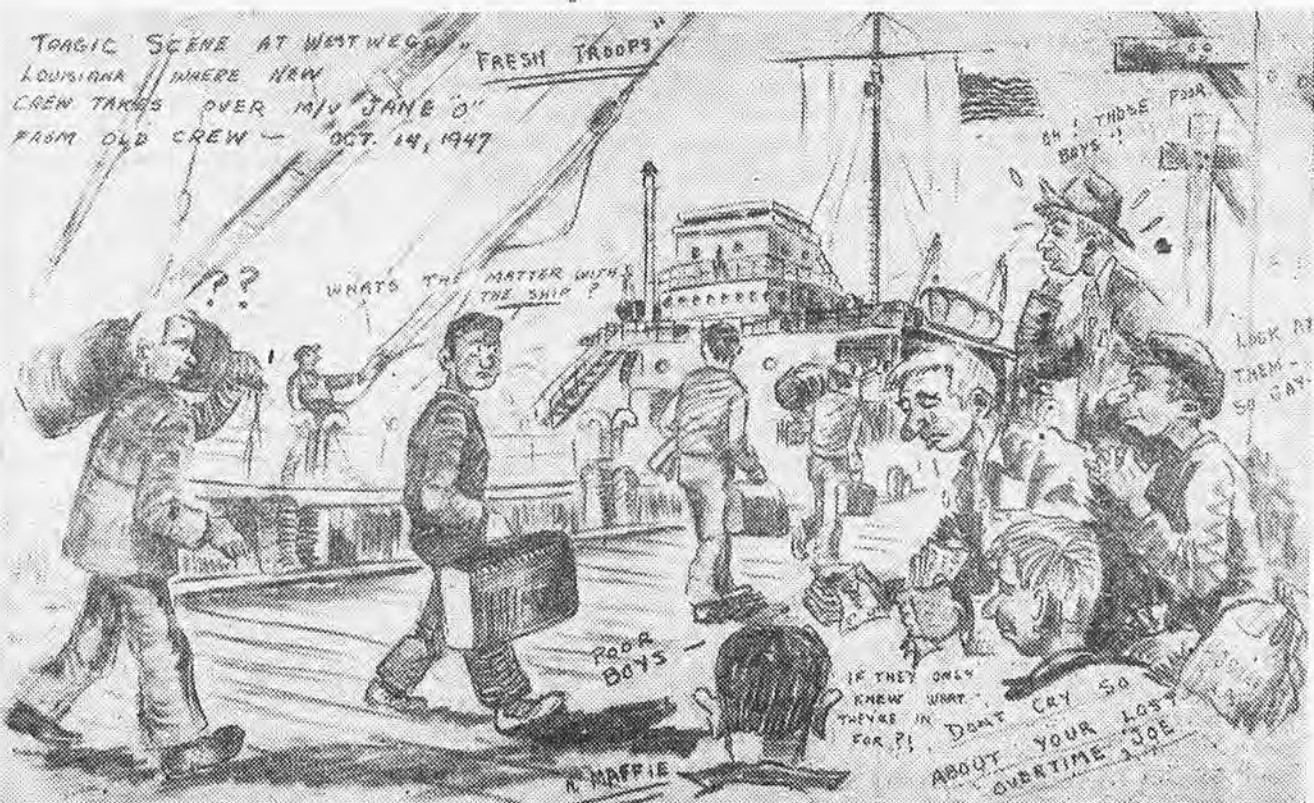 TRAGIC SCENE AT WESTWEGO,
LOUISIANA WHERE NEW
CREW TAKES OVER M/V JANE "O"
FROM OLD CREW — OCT. 14, 1947
"FRESH TROOPS"
OH! THOSE POOR
BOYS!!
??
WHATS THE MATTER WITH
THE SHIP?
LOOK AT
THEM-
SO GAY.
POOR
BOYS
IF THEY ONLY
KNEW WHAT
THEYRE IN
FOR ?!
DONT CRY SO
ABOUT YOUR LOST
OVERTIME JOE
MAFFIE